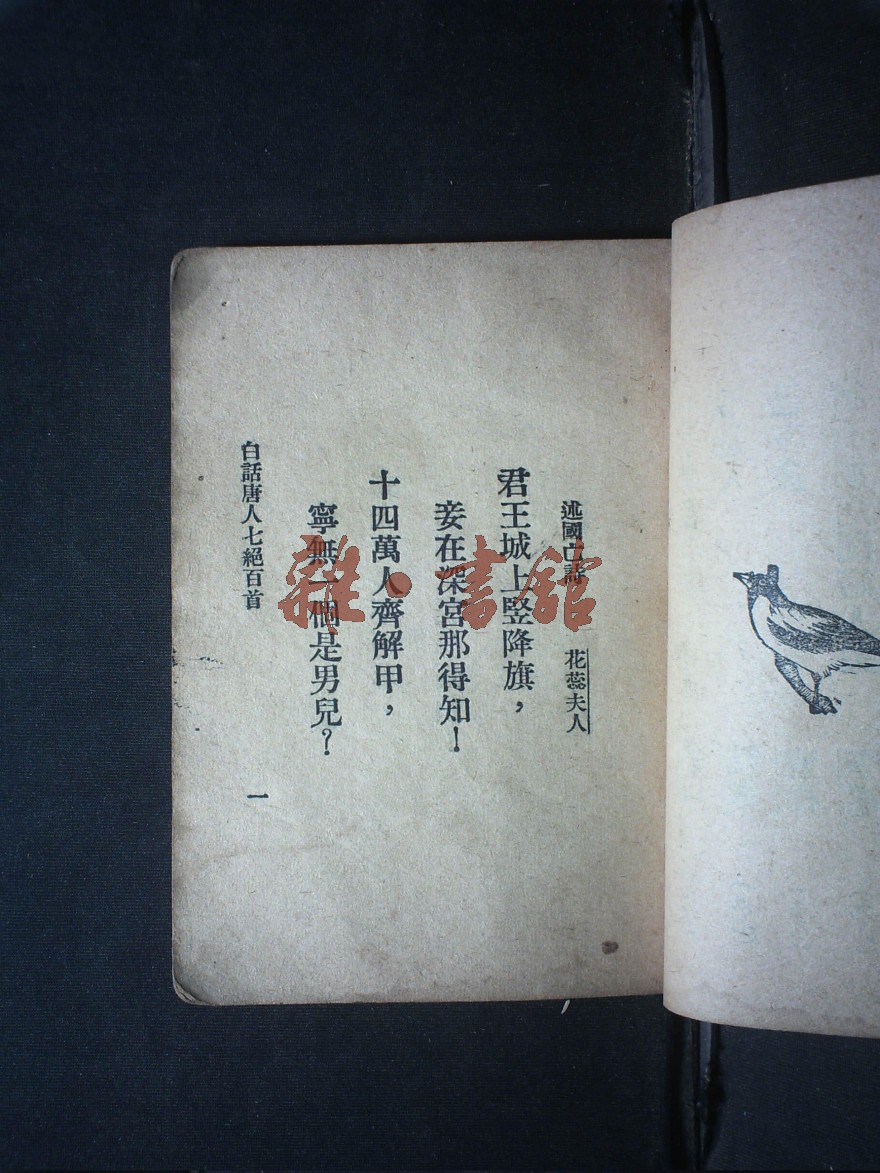 述國亡詩 花蕊夫人
君王城上竪降旗，
妾在深宮那得知！
十四萬人齊解甲，
寧無一個是男兒？
白話唐人七絕百首
一
雜·書館